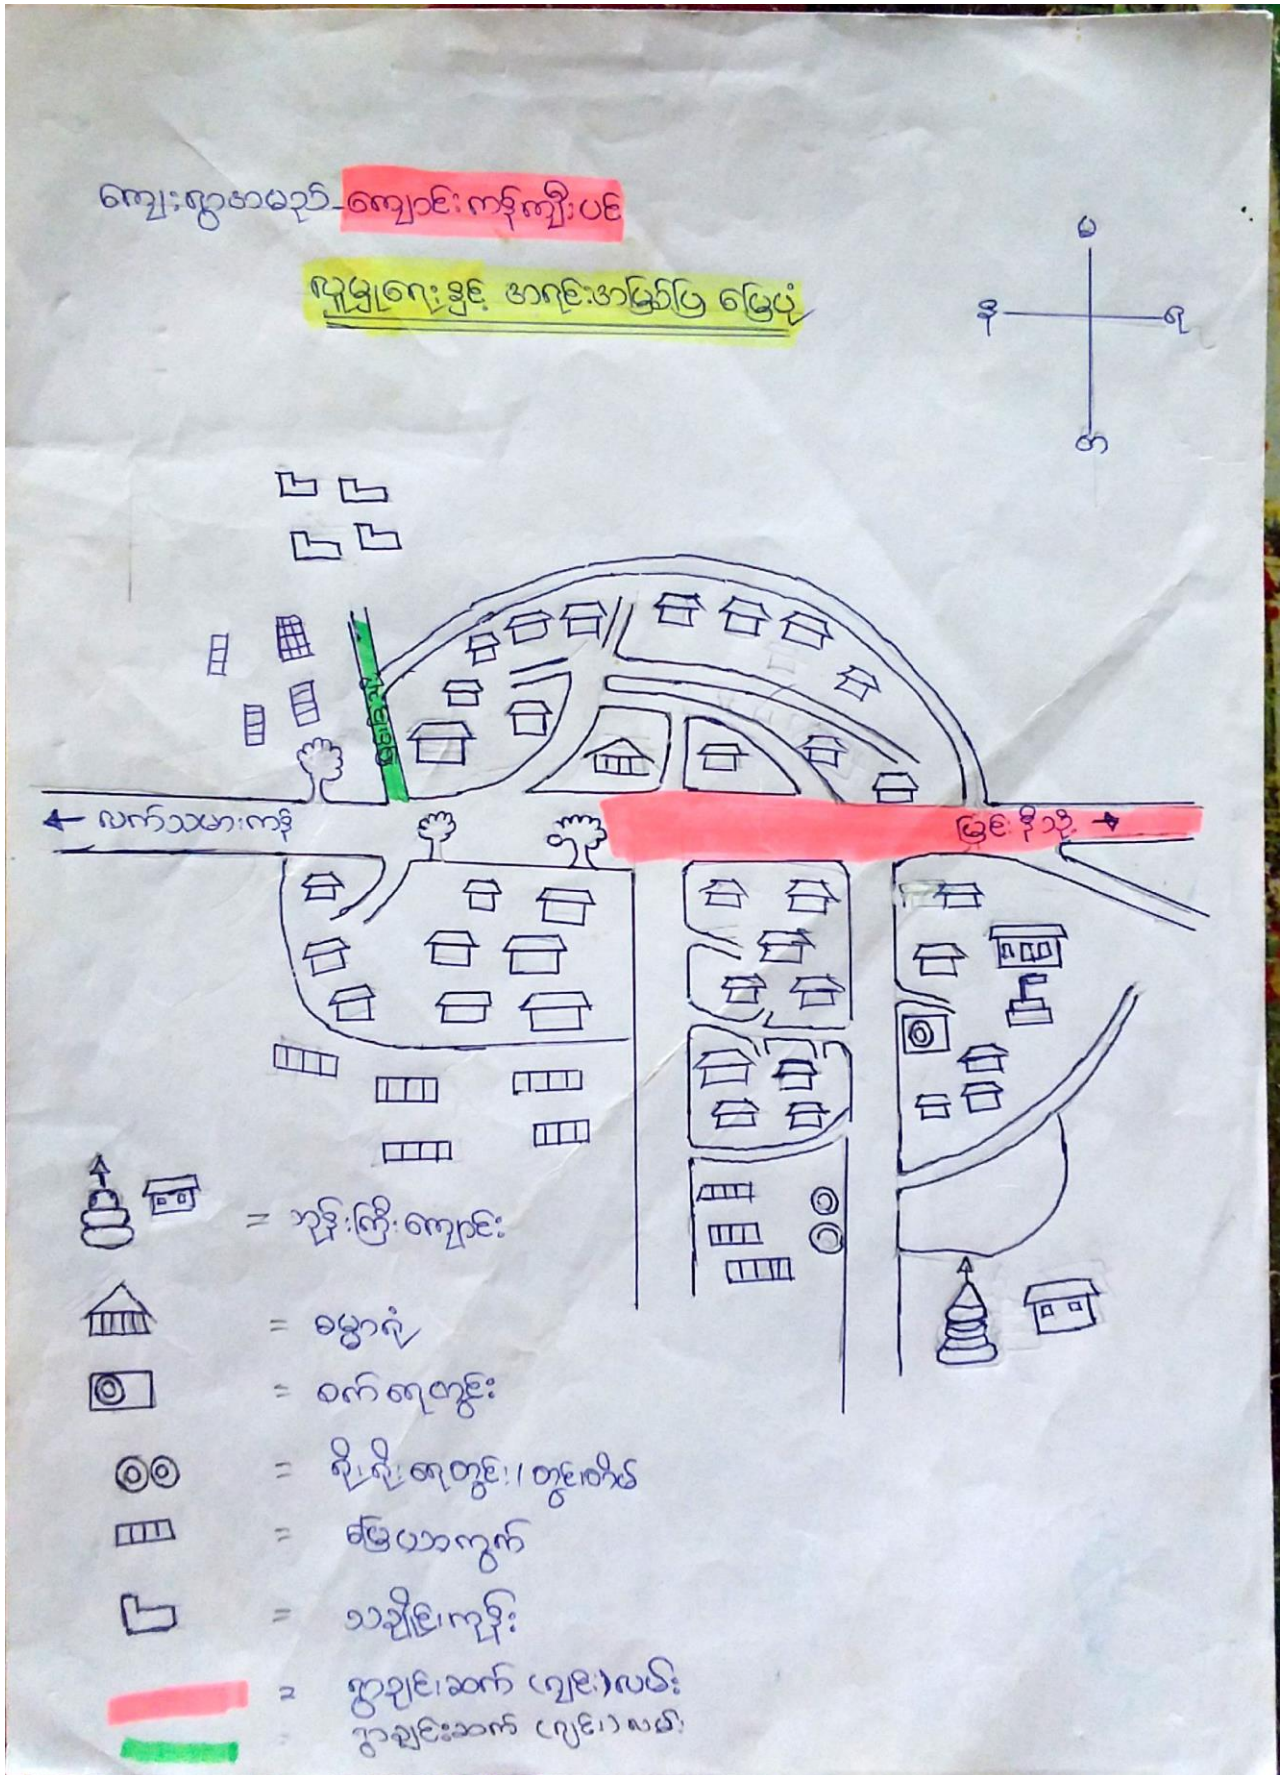 ကျေးရွာအမည်-ကျောင်းကန်ကျီးပင်
လူမှုရေးနှင့် အရင်းအမြစ်ပြ မြေပုံ
မ
န
ရ
တ
← လက်သမားကန်
မြင်းနီသို့ →
= ဘုန်းကြီးကျောင်း
= ဓမ္မာရုံ
= စက်ရေတွင်း
= ရိုးရိုးရေတွင်း/တွင်းတိမ်
= မြေပဲဘကွက်
= သချိုင်းကုန်း
= ရွာချင်းဆက် (ဂျင်း) လမ်း
= ရွာချင်းဆက် (ဂျင်း) လမ်း